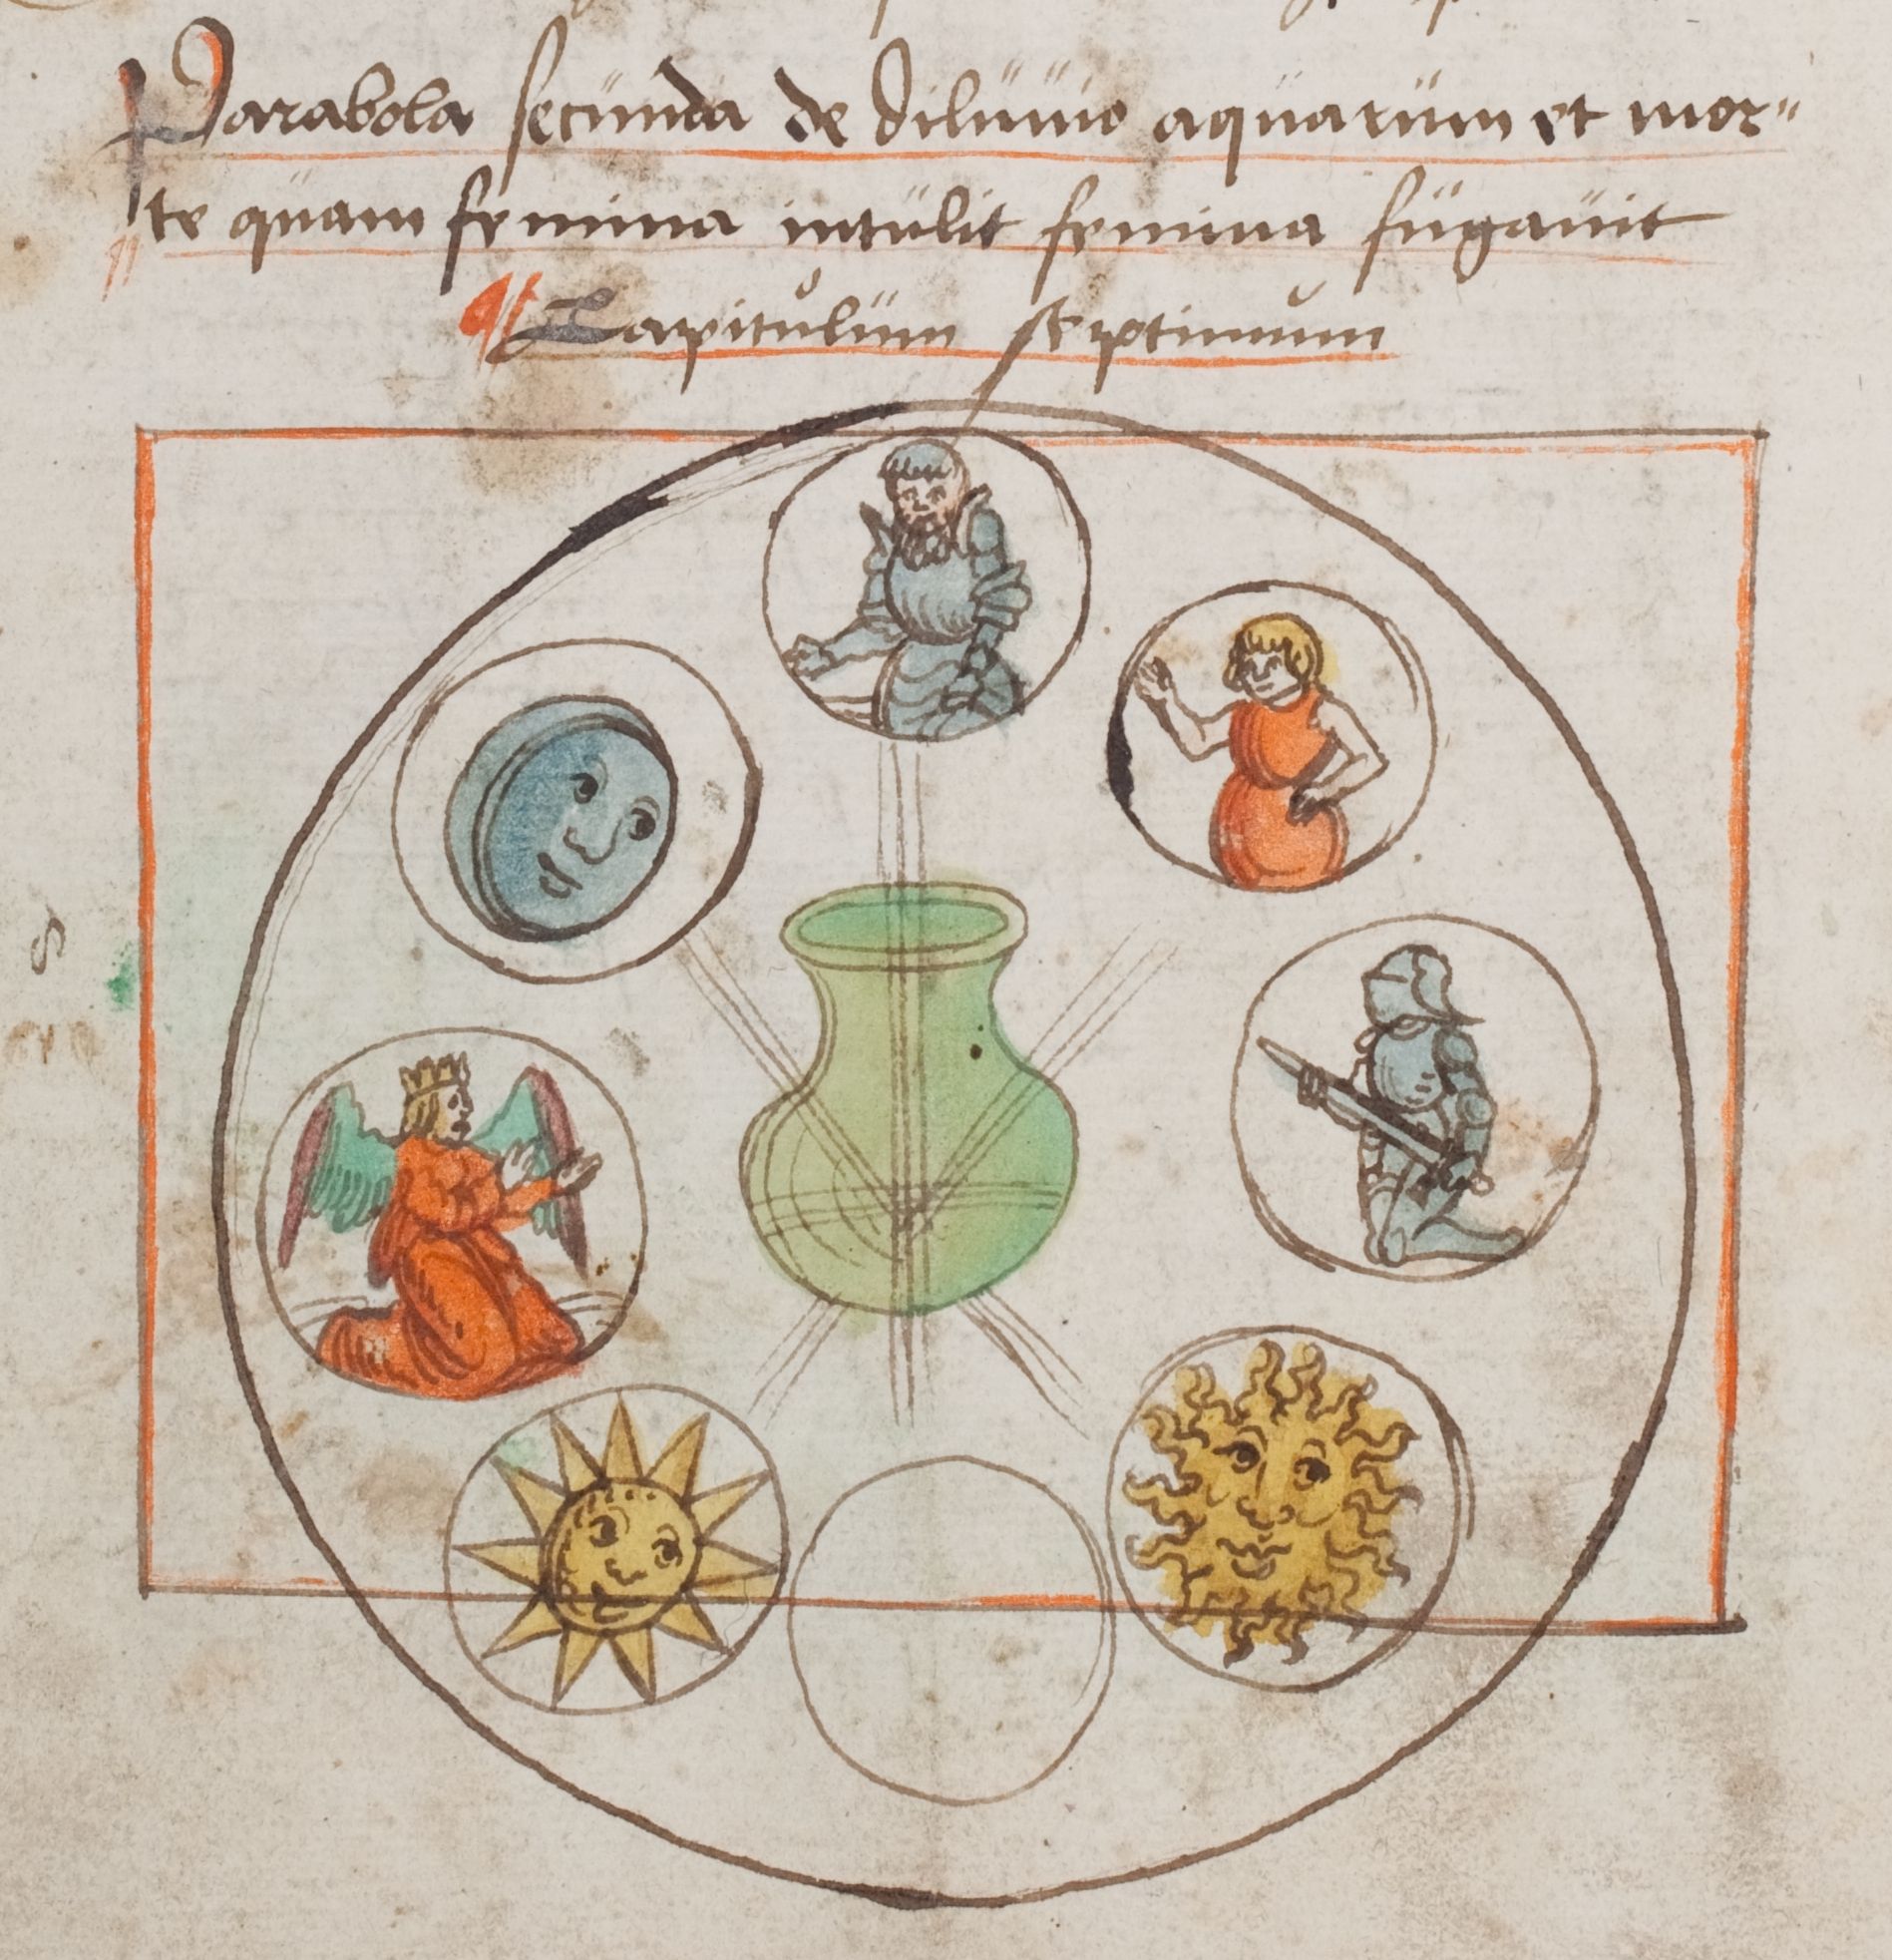 Parabola secunda de diluuio aquarum et mor〃
〃te quam femina intulit femina fugauit
Capitulum septimum